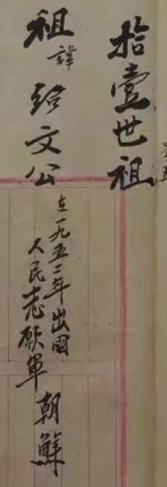 拾壹世祖
祖諱紹文公
在一九五二年出國
人民志愿軍 朝鮮